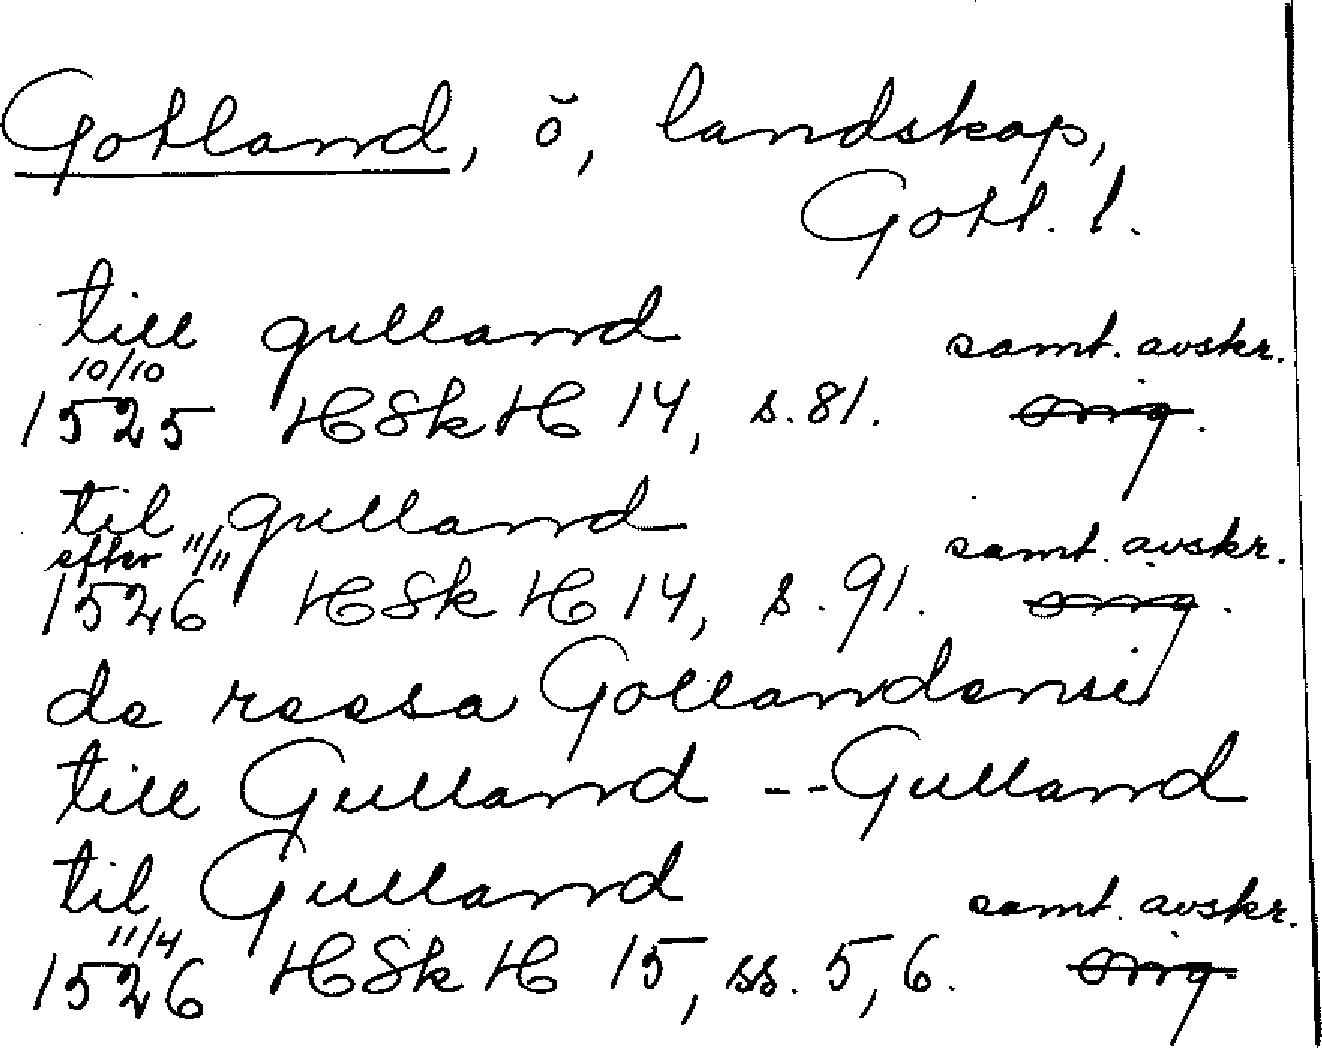 Gotland, ö, landskap,
Gotl. l.
till gulland samt. avskr.
10/10
1525 HSkH 14, s. 81. orig.
til gulland samt. avskr.
efter 11/11
1526 HSkH 14, s. 91. orig.
de reesa Gollandensi
till Gulland -- Gulland
til Gulland samt. avskr.
11/4
1526 HSkH 15, ss. 5, 6. orig.